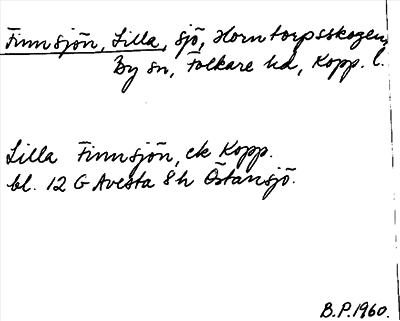 Finnsjön, Lilla, sjö, Horntorpsskogen,
By sn, Folkare hd, Kopp. l.
Lilla Finnsjön, ek Kopp.
bl. 12 G Avesta 8 h Östansjö.
B.P. 1960.